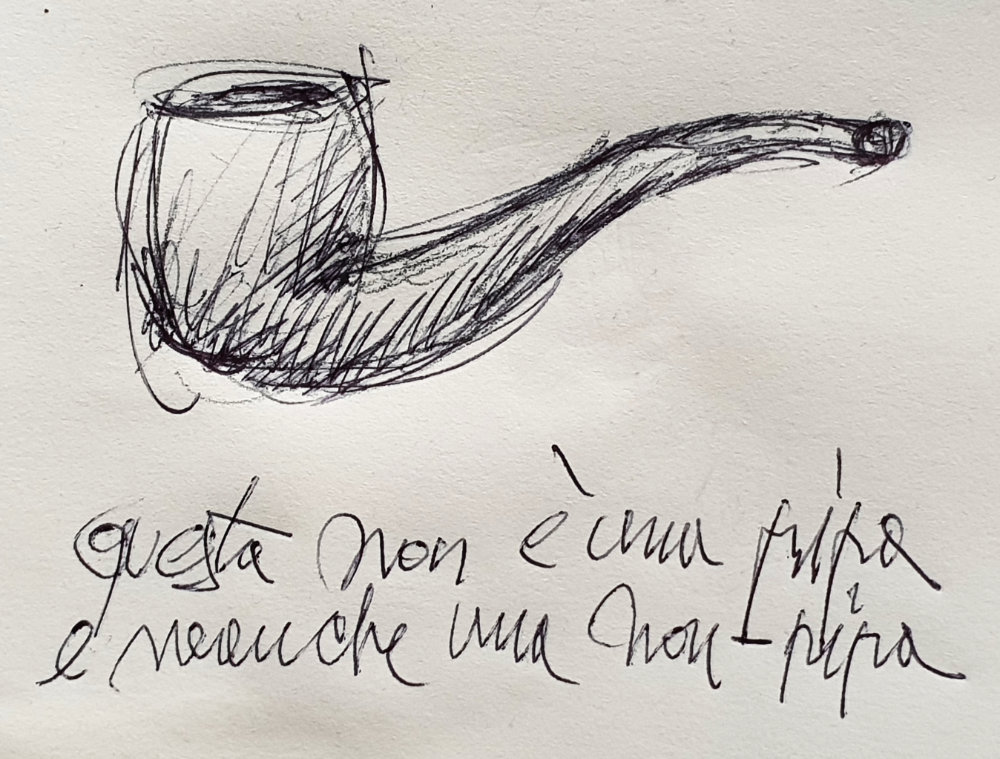 questa non è una pipa
e neanche una non-pipa